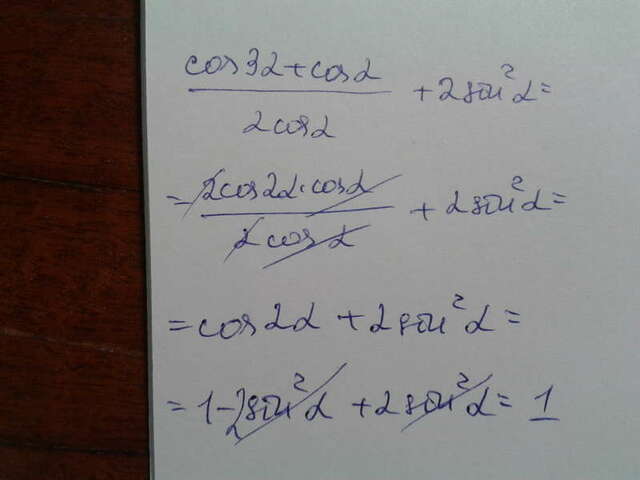 cos3α+cosα
/ 2cosα + 2sin²α=
= 2cos2α·cosα / 2cosα + 2sin²α=
=cos2α + 2sin²α=
=1-2sin²α+2sin²α=1